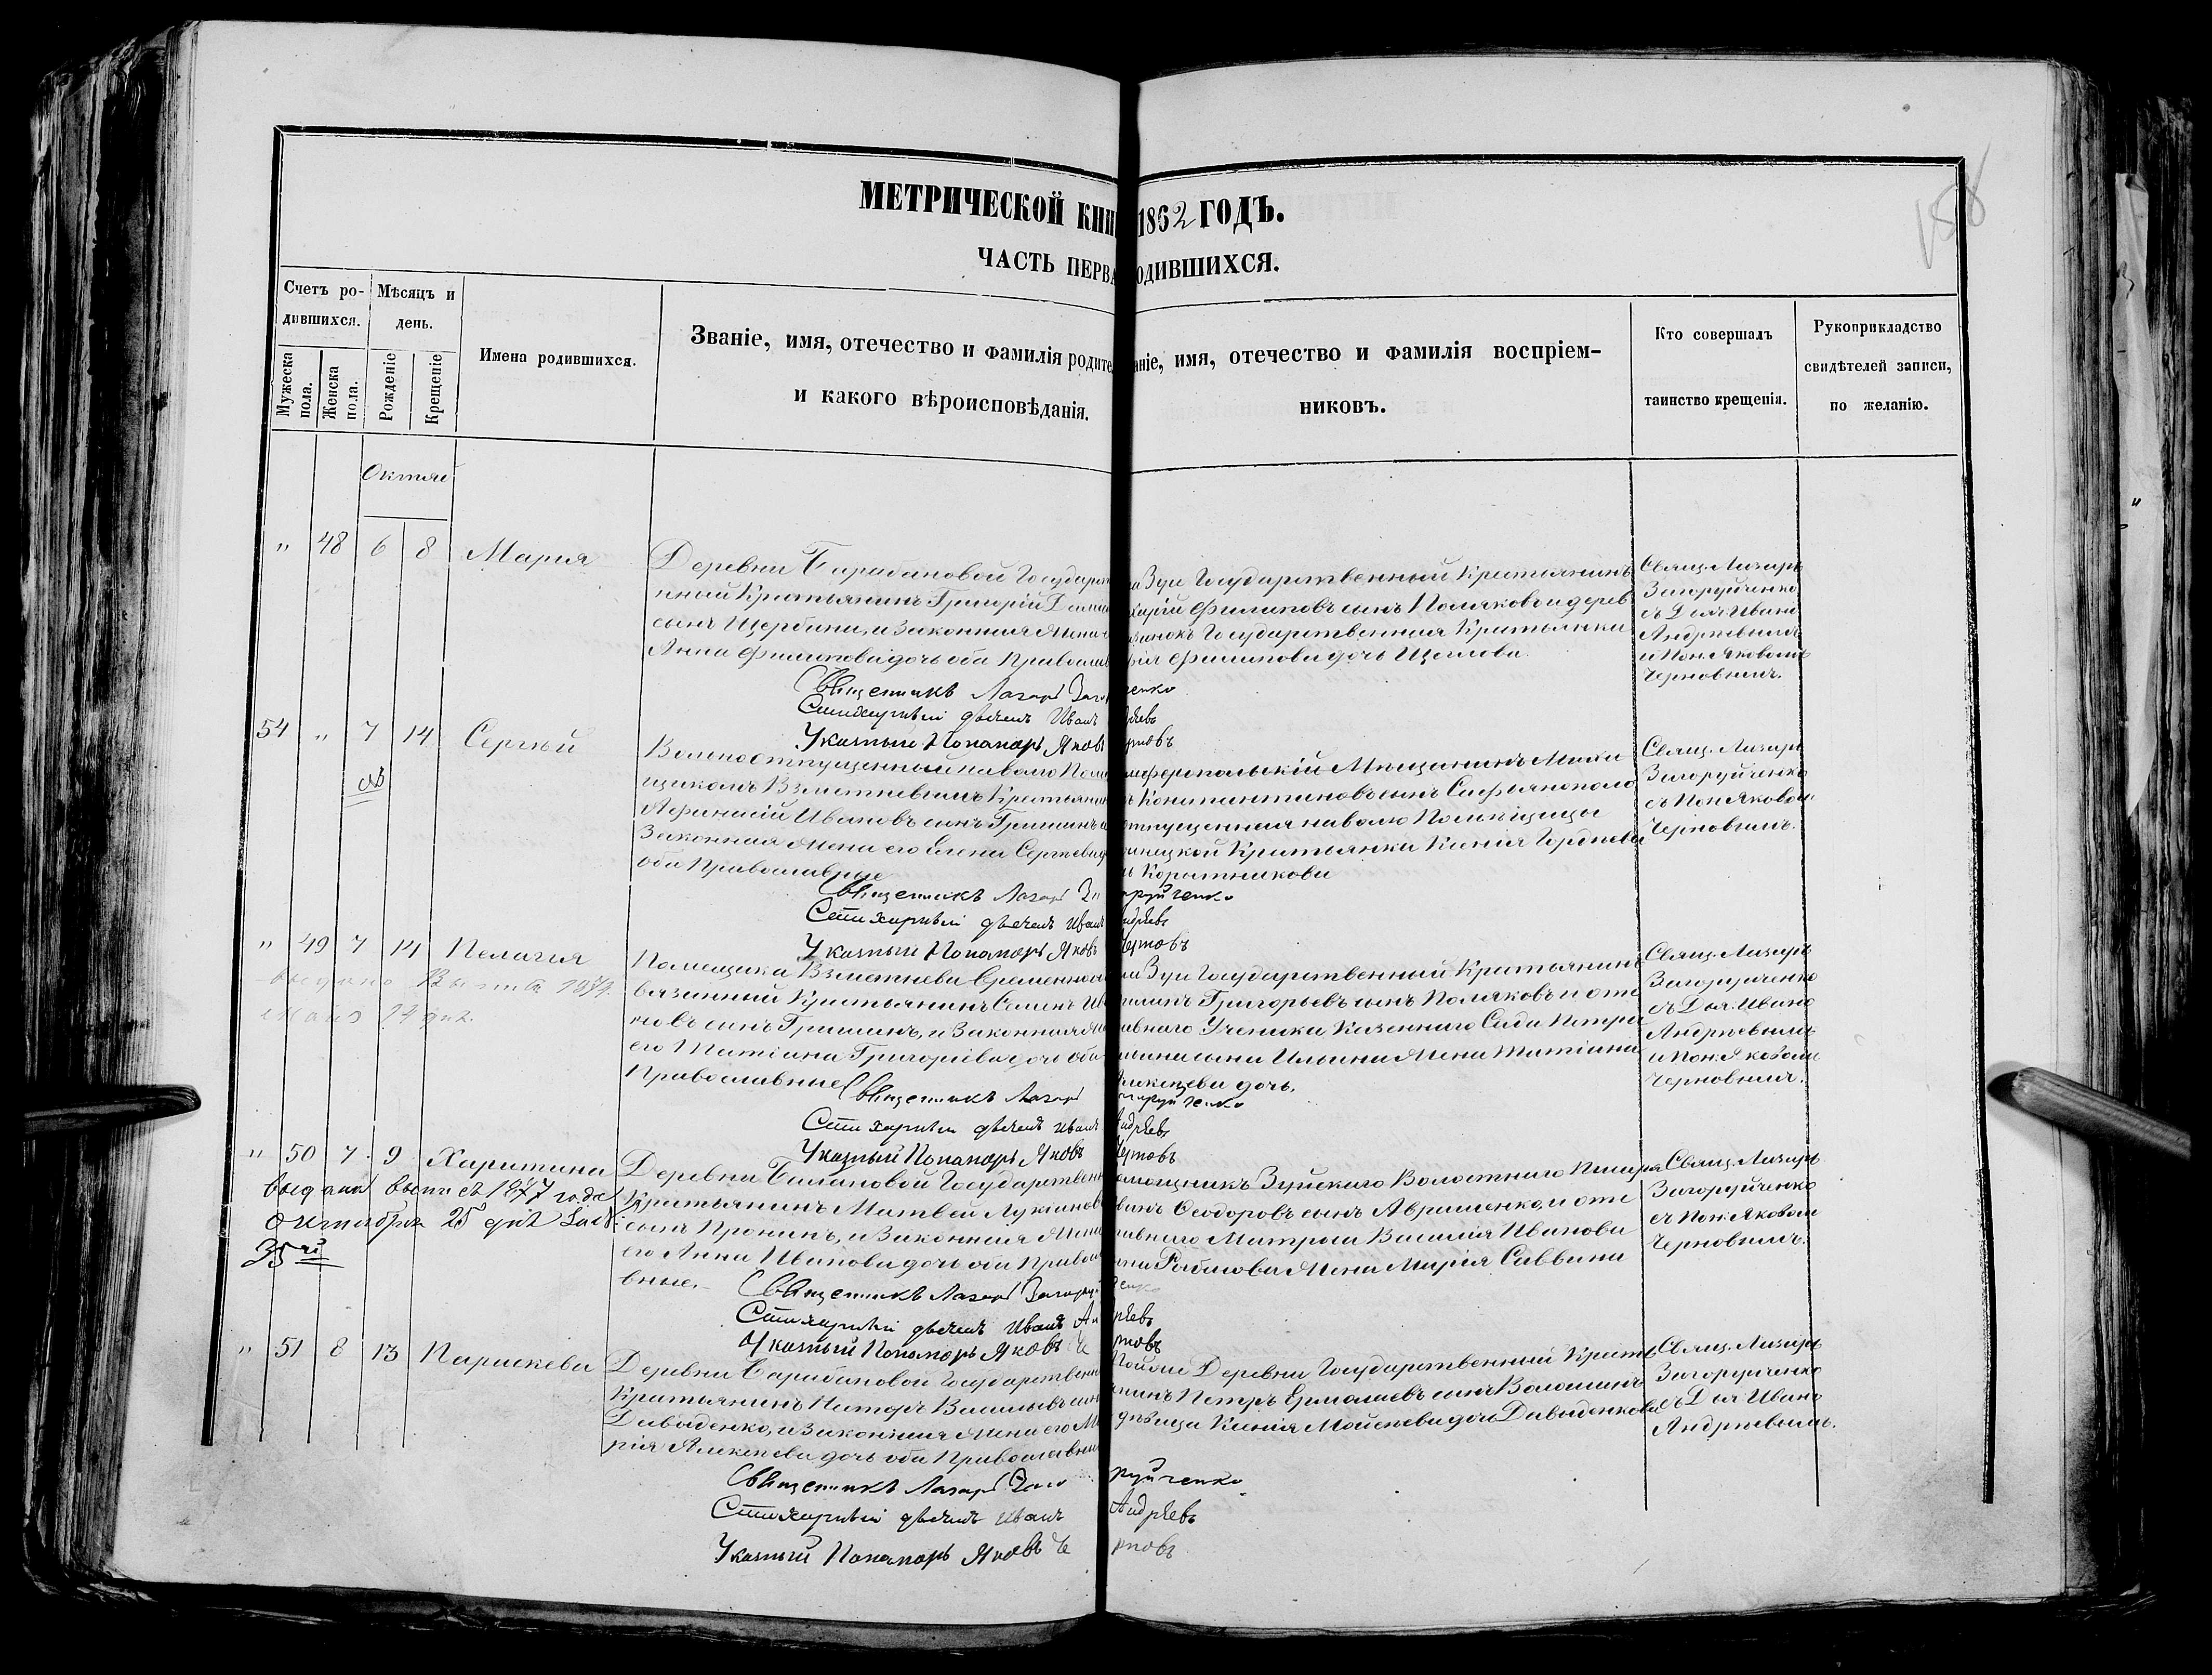 МЕТРИЧЕСКОЙ КНИ 1862 ГОДЪ.
ЧАСТЬ ПЕРВА ОДИВШИХСЯ.
Счетъ ро-
дившихся.
Мѣсяцъ и
день.
Мужеска пола.
Женска пола.
Рожденіе
Крещеніе
Имена родившихся.
Званіе, имя, отечество и фамилія родите
и какого вѣроисповѣданія.
аніе, имя, отечество и фамилія воспріем-
никовъ.
Кто совершалъ
таинство крещенія.
Рукоприкладство
свидѣтелей записи,
по желанію.
158
Октяб
" 48 6 8 Марія
Деревни Барабановой Государст
нный Крестьянинъ Григорій
сынъ Щербина, и Законная Жена
Анна Филипова дочь оба Правосла
Зуи Государственный Крестьянинъ
Филиповъ сынъ Поляковъ и дерев
Государственная Крестьянка
Филипова дочь Щеглова.
Свящ. Лазарь
Загоруйченко
съ Дья. Иваномъ
Андреевымъ
и Пон. Яковомъ
Черновымъ.
Священникъ Лазарь Заго ченко
Стихарный дьячекъ Иванъ дреевъ
Указный Пономарь Яковъ рновъ
54 " 7 14 Сергѣй
Вольноотпущенный на волю Поме
щикомъ Взметневымъ Крестьянин
Афанасій Ивановъ сынъ Гришинъ и
Законная Жена его Елена Сергеева д
оба Православные
мферопольскій Мещанинъ Михаи
ъ Константиновъ сынъ Сафьянополо
отпущенная на волю Помѣщицы
Крестьянка Ксенія Гордеева
ь Коротникова
Свящ. Лазарь
Загоруйченко
съ Пон. Яковом.
Черновымъ.
Священникъ Лазарь За оруйченко
Стихарный дьячекъ Иванъ Андреевъ
Указный Пономарь Яковъ Черновъ
" 49 7 14 Пелагія
выдано Выпись 187
дня.
Помещика Взметнева Временноо
бязанный Крестьянинъ Семенъ Ив
новъ сынъ Гришинъ, и Законная Же
его Татіана Григоріева дочь оба
Православные
Зуи Государственный Крестьянинъ
Григорьевъ сынъ Поляковъ и отс
авнаго Ученика Казеннаго Сада Петра
сына Ильина Жена Татіана
лексѣева дочь.
Свящ. Лазарь
Загоруйченко
съ Дья. Ивано
Андреевымъ
и Пон. Яковом
Черновымъ.
Священникъ Лазарь оруйченко
Стихарный дьячекъ Иванъ Андреевъ
Указный Пономарь Яковъ Черновъ
" 50 7 9 Харитина
выдана выпись 1877 года
октября 25 дня за №
35й
Деревни Балановой Государствен
Крестьянинъ Матвей Лукіанов
сынъ Пронинъ, и Законная Жена
его Анна Иванова дочь оба Правосла
вные.
омощникъ Зуйскаго Волостнаго Писаря
Феодоровъ сынъ Авраменко, и отс
авнаго Матроса Василія Иванова
Рыбасова Жена Марія Саввина
Свящ. Лазарь
Загоруйченко
съ Пон. Яковом
Черновымъ.
Священникъ Лазарь Загоруй ченко
Стихарный дьячекъ Иванъ Ан дреевъ
Указный Пономарь Яковъ Че рновъ
" 51 8 13 Параскева
Деревни Барабановой Государствен
Крестьянинъ Несторъ Васильевъ сын
Давыденко, и Законная Жена его Ма
рія Алексѣева дочь оба Православны
Тойже Деревни Государственный Кресть
янинъ Петръ Ермолаевъ сынъ Волошинъ
дѣвица Ксенія Мойсѣева дочь Давыденкова
Свящ. Лазарь
Загоруйченко
съ Дья. Ивано
Андреевымъ.
Священникъ Лазарь Заго руйченко
Стихарный дьячекъ Иванъ Андреевъ
Указный Пономарь Яковъ Че рновъ